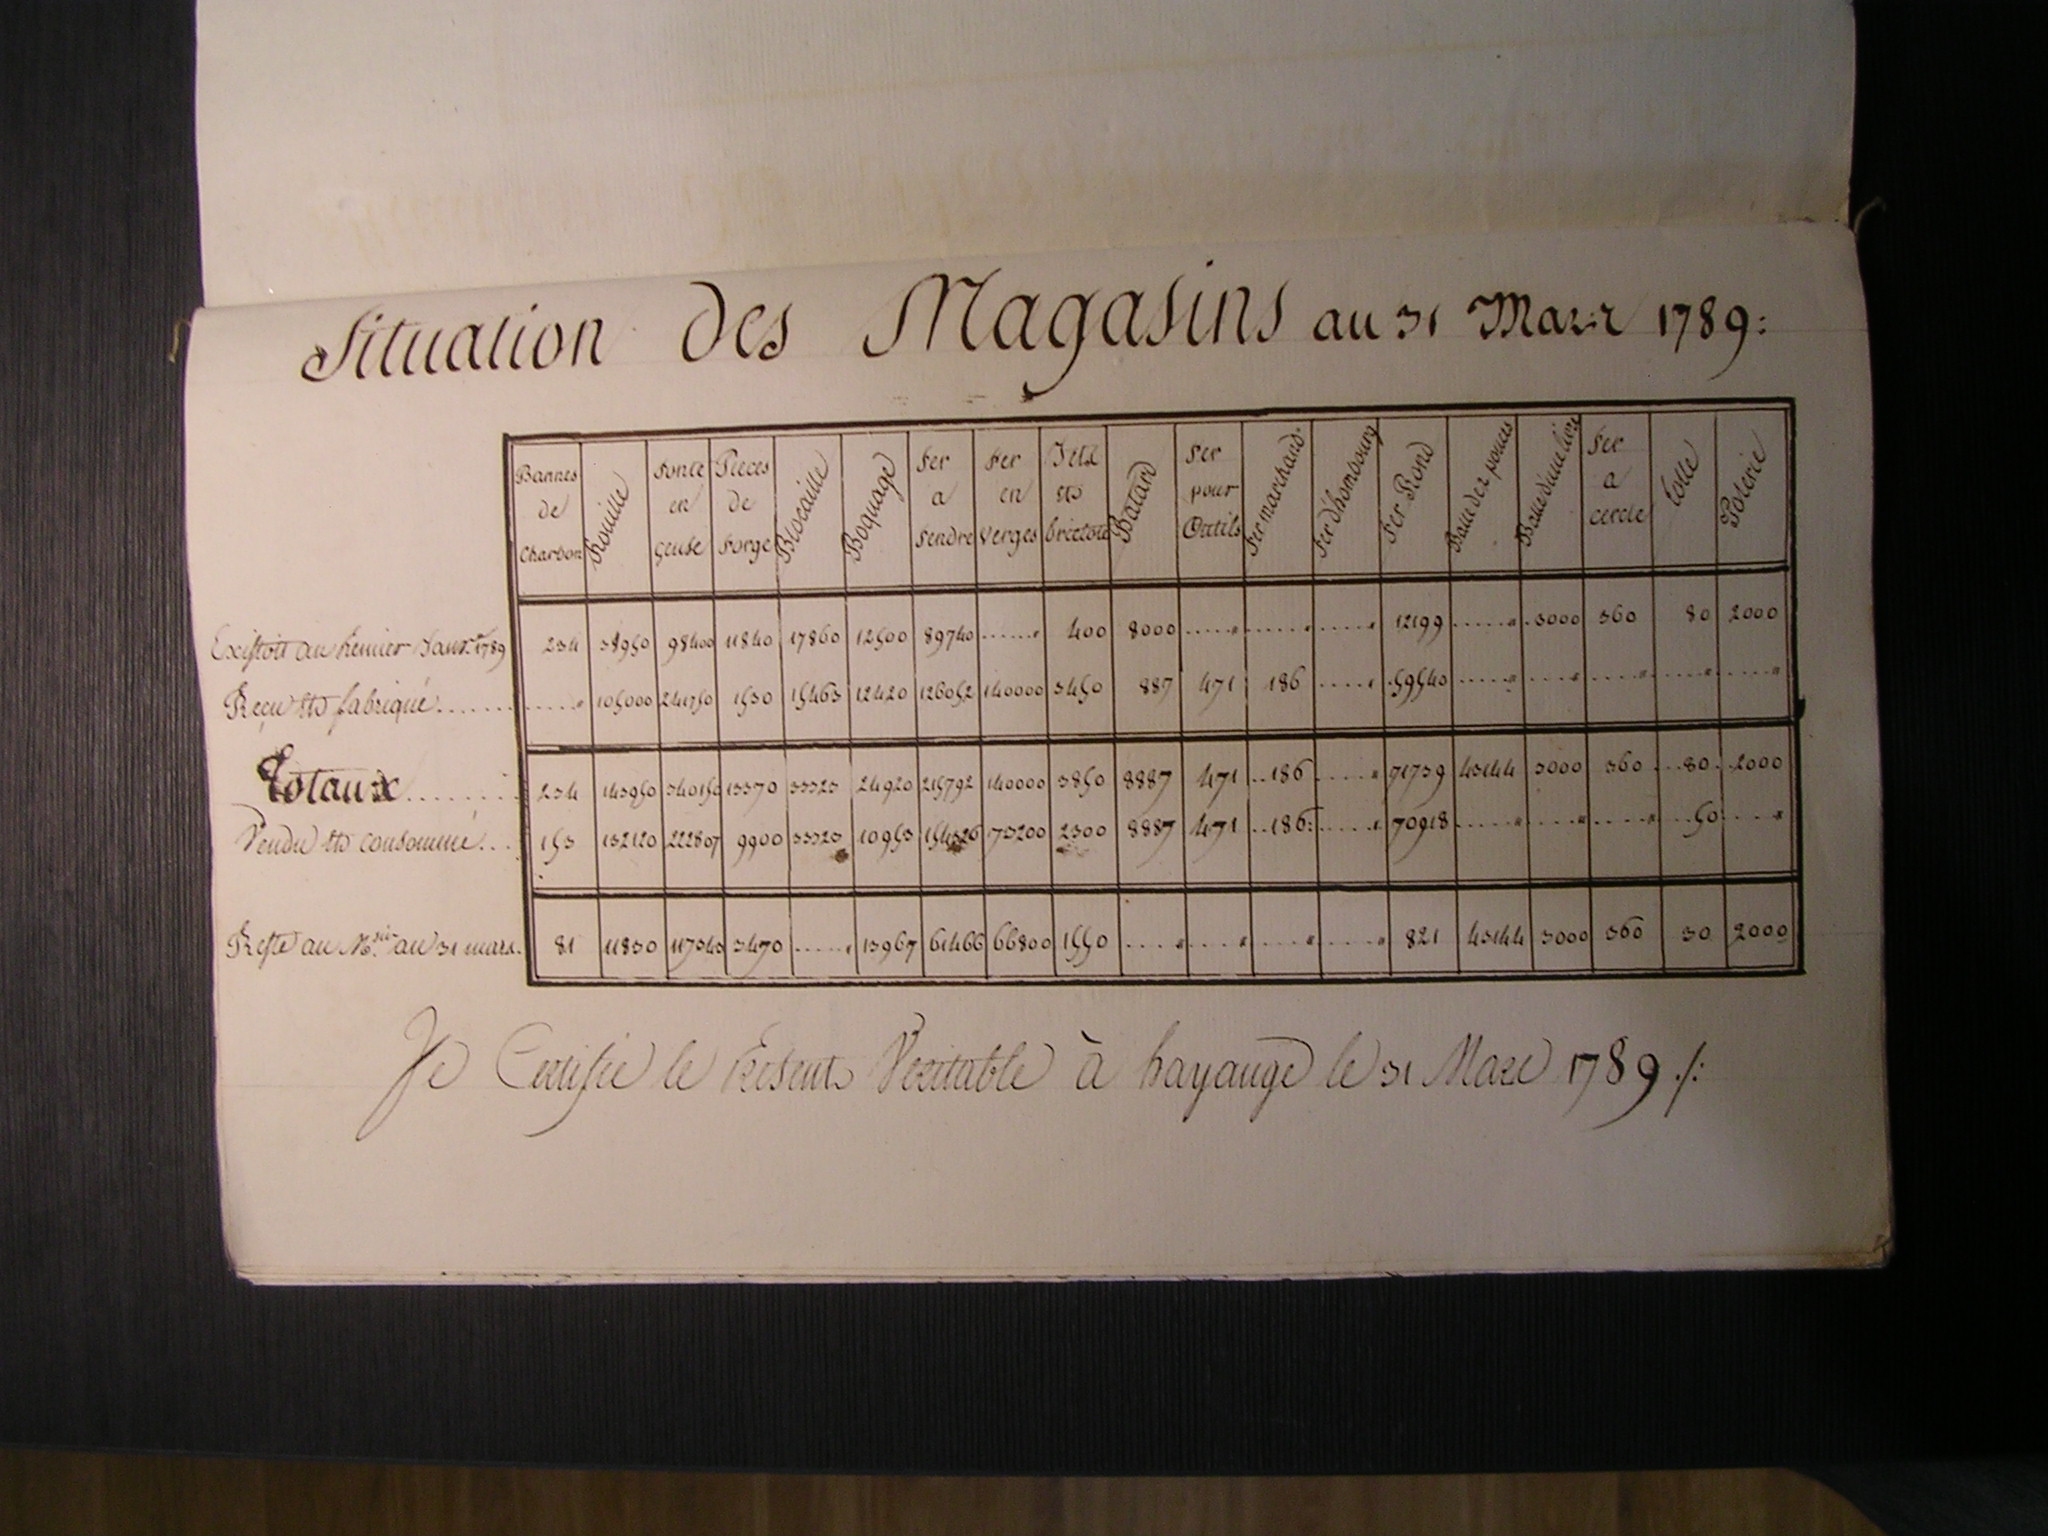 Situation des Magasins au 31 Mars 1789:
Bannes de Charbon | houille | fonte en geuse | Pieces de forge | Blocaille | Boquage | fer a fendre | fer en verges | brictons | Batard | fer pour Outils | fer marchand | fer d'hombourg | fer Rond | Balle de 2 pouces | fer a cercle | tolle | Poterie
Existoit au premier Janv.er 1789 | 234 | 38950 | 98400 | 11840 | 17860 | 12500 | 89740 | ...... " | 400 | 8000 | ..... " | ..... " | ..... " | 12199 | ..... " | 3000 | 360 | 80 | 2000
Reçu et fabriqué....... | ..... " | 105000 | 241750 | 1530 | 15463 | 12420 | 126052 | 140000 | 3450 | 887 | 471 | 186 | ..... " | 59540 | ..... " | .... " | .... " | .... " | .... "
Totaux........ | 234 | 143950 | 340150 | 13370 | 33323 | 24920 | 215792 | 140000 | 3850 | 8887 | 471 | 186 | ..... " | 71739 | 43144 | 3000 | 360 | 80 | 2000
Vendu et consommé... | 153 | 132120 | 222807 | 9900 | 33323 | 10953 | 154326 | 73200 | 2300 | 8887 | 471 | 186 | ..... " | 70918 | ..... " | .... " | .... " | 50 | .... "
Reste au M.sin au 31 mars. | 81 | 11830 | 117343 | 3470 | ..... " | 13967 | 61466 | 66800 | 1550 | .... " | .... " | .... " | .... " | 821 | 43144 | 3000 | 360 | 30 | 2000
Je Certifie le Présent Veritable à hayange le 31 Mars 1789 ./: